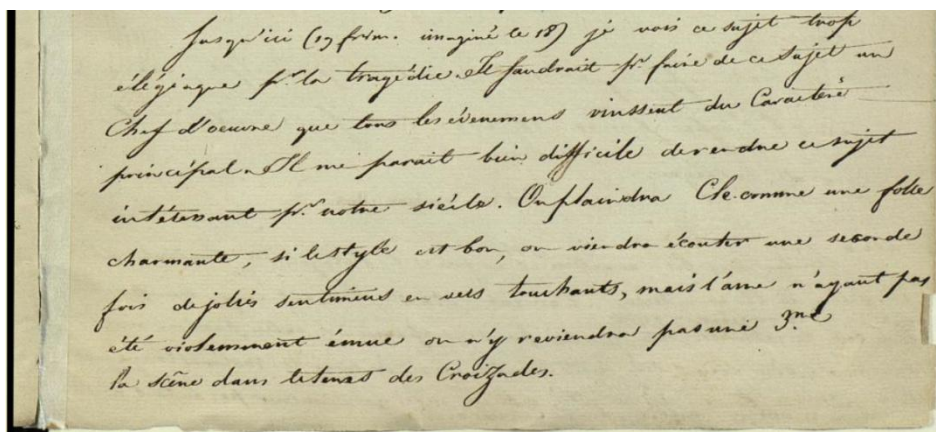 Jusqu'ici (19 frim. imaginé le 18) je vois ce sujet trop
élégiaque pr. la tragédie. Il faudrait pr. faire de ce sujet un
Chef d'oeuvre que tous les évenemens vinssent du Caractère
principal. Il me parait bien difficile de rendre ce sujet
intéressant pr. notre siècle. On plaindra Cle. comme une folle
charmante, si le style est bon, on viendra écouter une seconde
fois de jolis sentimens en vers touchants, mais l'âme n'ayant pas
été violemment émue on n'y reviendra pas une 3.me
la scène dans le tems des Croizades.